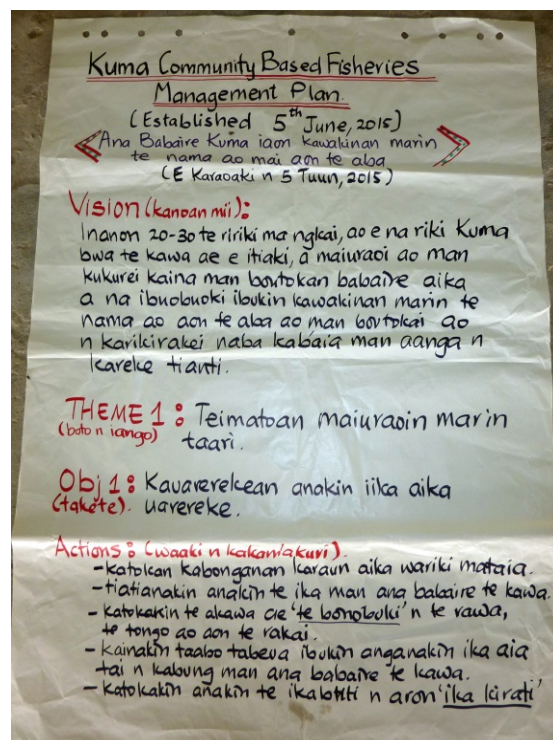 Kuma Community Based Fisheries
Management Plan.
(Established 5th June, 2015)
Ana Babaire Kuma iaon kawakinan marin
te nama ao mai aon te aba
(E Karaoaki n 5 Tuun, 2015)
Vision (kanoan mii):
Inanon 20-30 te ririki ma ngkai, ao e na riki Kuma
bwa te kawa ae e itiaki, a maiuraoi ao man
kukurei kaina man boutokan babaire aika
a na ibuobuoki ibukin kawakinan marin te
nama ao aon te aba ao man boutokai ao
n karikirakei naba kabaia man aanga n
kareke tianti.
THEME 1 : Teimatoan maiuraoin marin
(boto n iango) taari.
Obj 1 : Kauarerekean anakin iika aika
(takete). uarereke.
Actions : (waaki n kakaniakuri).
- katokan kabonganan karaun aika wariki mataia.
- tiatianakin anakin te ika man ana babaire te kawa.
- katokakin te akawa ae 'te bonobuki' n te rawa,
te tongo ao aon te rakai.
- kainakin taabo tabeua ibukin anganakin ika aia
tai n kabung man ana babaire te kawa.
- katokakin anakin te n aron 'ika kirati'